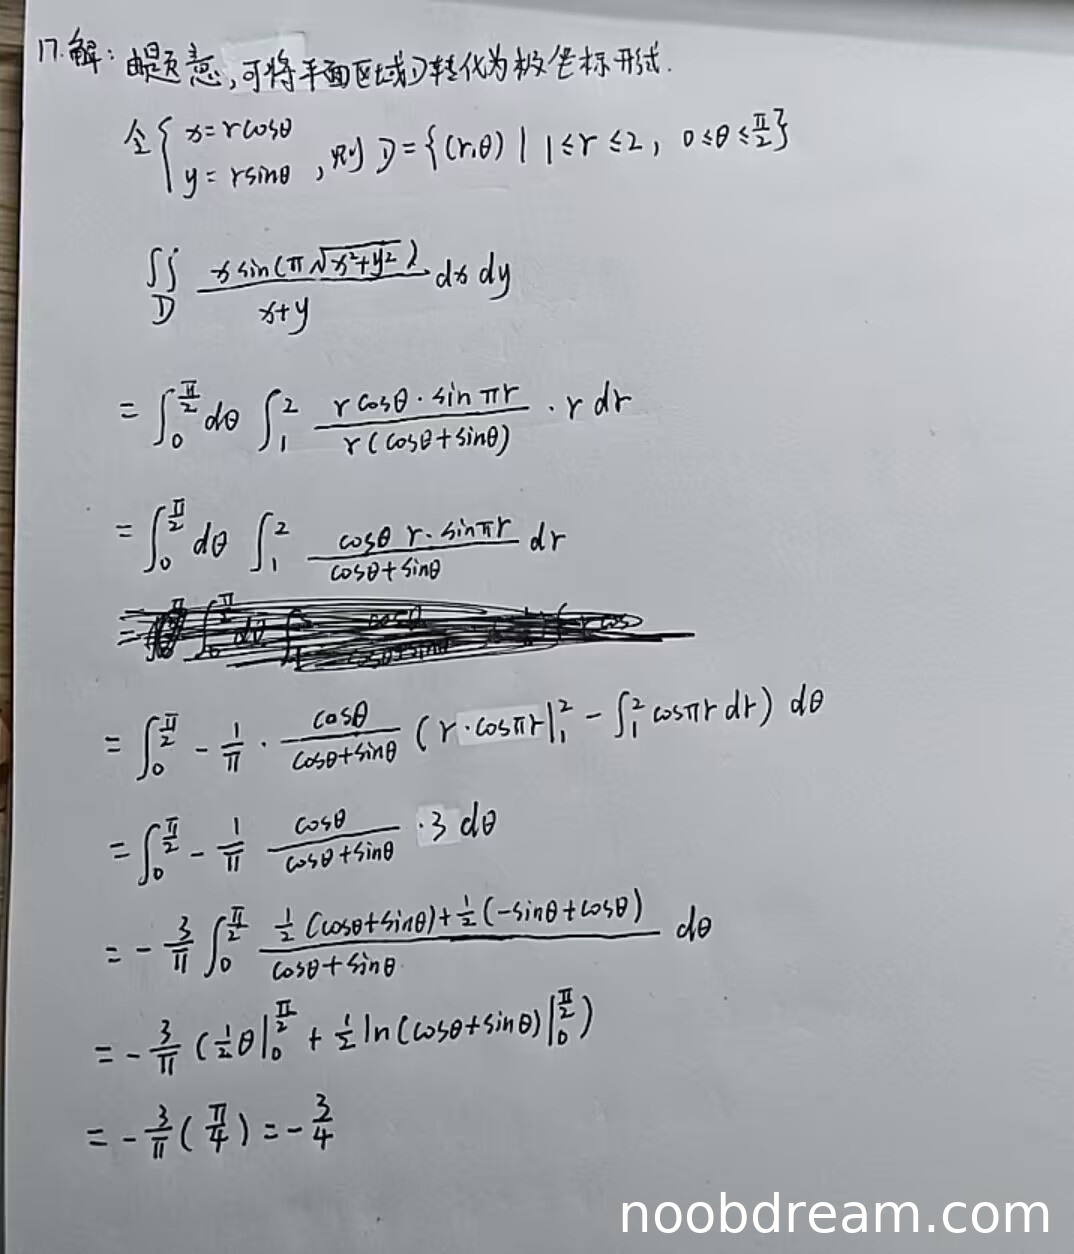 17.解: 由题意,可将平面区域D转化为极坐标形式.
令 { x=rcosθ y=rsinθ , 则 D={(r,θ) | 1≤r≤2, 0≤θ≤π/2}
∬_D xsin(π√(x²+y²))/(x+y) dxdy
= ∫_0^{π/2} dθ ∫_1^2 rcosθ·sinπr / r(cosθ+sinθ) · r dr
= ∫_0^{π/2} dθ ∫_1^2 cosθ r·sinπr / (cosθ+sinθ) dr
= ∫_0^{π/2} -1/π · cosθ/(cosθ+sinθ) (r·cosπr|_1^2 - ∫_1^2 cosπr dr) dθ
= ∫_0^{π/2} -1/π cosθ/(cosθ+sinθ) ·3 dθ
= -3/π ∫_0^{π/2} (1/2(cosθ+sinθ)+1/2(-sinθ+cosθ))/(cosθ+sinθ) dθ
= -3/π (1/2θ|_0^{π/2} + 1/2 ln(cosθ+sinθ)|_0^{π/2})
= -3/π(π/4) = -3/4
noobdream.com